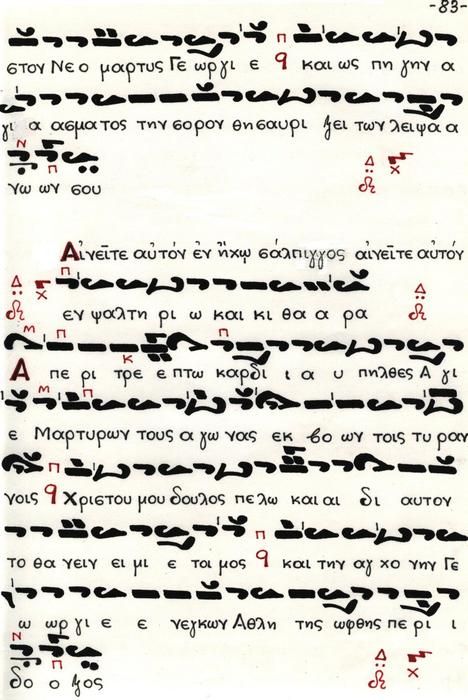 -83-
στον Νε ο μαρτυς Γε ωργι ε και ως πη γην α
γι α ασματος την σορον θησαυρι ζει των λειψα α
νω ων σου
Αἰνεῖτε αὐτόν ἐν ἤχῳ σάλπιγγος αἰνεῖτε αὐτόν
εν ψαλτη ρι ω και κι θα α ρα
Α πε ρι τρε ε πτω καρδι ι α υ πηλθες Α γι
ε Μαρτυρων τους α γω νας εκ βο ων τοις τυ ραν
νοις Χριστου μου δουλος πε λω και αι δι αυτον
το θα νειν ει μι ε τοι μος και την αγ χο νην Γε
ω ωρ γι ε ε νεγκων Αθλη της ωφθης πε ρι ι
δο ο ξος